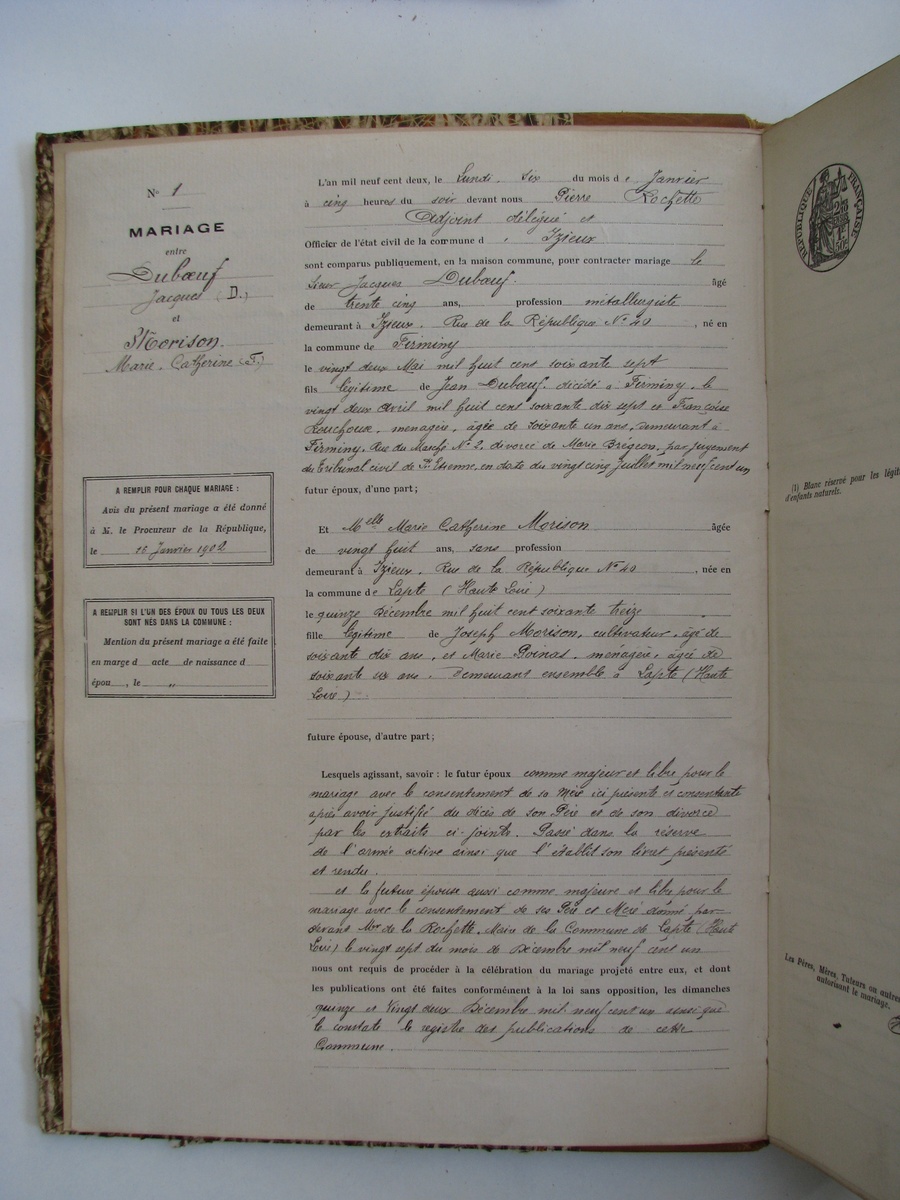 N° 1
MARIAGE
entre
Dubœuf
Jacques (D.)
et
Morison.
Marie. Catherine (F.)
A REMPLIR POUR CHAQUE MARIAGE :
Avis du présent mariage a été donné
à M. le Procureur de la République,
le 15 Janvier 1902
A REMPLIR SI L'UN DES ÉPOUX OU TOUS LES DEUX
SONT NÉS DANS LA COMMUNE :
Mention du présent mariage a été faite
en marge d acte de naissance d
épou , le „
L'an mil neuf cent deux, le Lundi. six du mois de Janvier
à cinq heures du soir devant nous Pierre Rochette
Adjoint délégué et
Officier de l'état civil de la commune d'Izieux
sont comparus publiquement, en la maison commune, pour contracter mariage le
sieur Jacques Dubœuf. âgé
de trente cinq ans, profession métallurgiste
demeurant à Izieux. Rue de la République N° 40 , né en
la commune de Firminy
le vingt deux Mai mil huit cent soixante sept
fils légitime de Jean Dubœuf. décidé à Firminy, le
vingt deux Avril mil huit cent soixante dix sept et Françoise
Souchouse, menagère, âgée de soixante un ans, demeurant à
Firminy, Rue du Marché N° 2, divorcé de Marie Brégeon, par jugement
du Tribunal civil de St Etienne, en date du vingt cinq Juillet mil neuf cent un
futur époux, d'une part ;
Et Melle Marie Catherine Morison âgée
de vingt huit ans, sans profession
demeurant à Izieux. Rue de la République N° 40 , née en
la commune de Lapte (Haute Loire)
le quinze Décembre mil huit cent soixante treize
fille légitime de Joseph Morison, cultivateur, âgé de
soixante dix ans, et Marie Boinas, ménagère, âgée de
soixante ans. Demeurant ensemble à Lapte (Haute
Loire)
future épouse, d'autre part ;
Lesquels agissant, savoir : le futur époux comme majeur et libre pour le
mariage avec le consentement de sa Mère ici présente et consentante
après avoir justifié du décès de son Père et de son divorce
par les extraits ci-joints. Passé dans la réserve
de l'armée active ainsi que l'établit son livret présenté
et rendu.
et la future épouse aussi comme majeure et libre pour le
mariage avec le consentement de ses Père et Mère donné par=
devant Mr de la Rochette, Maire de la Commune de Lapte (Haute
Loire) le vingt sept du mois de Décembre mil neuf cent un
nous ont requis de procéder à la célébration du mariage projeté entre eux, et dont
les publications ont été faites conformément à la loi sans opposition, les dimanches
quinze et Vingt deux Décembre mil neuf cent un ainsi que
le constate le registre des publications de cette
Commune.
RÉPUBLIQUE FRANÇAISE
(1) Blanc réservé pour les légit
d'enfants naturels.
Les Pères, Mères, Tuteurs ou autres
autorisant le mariage.